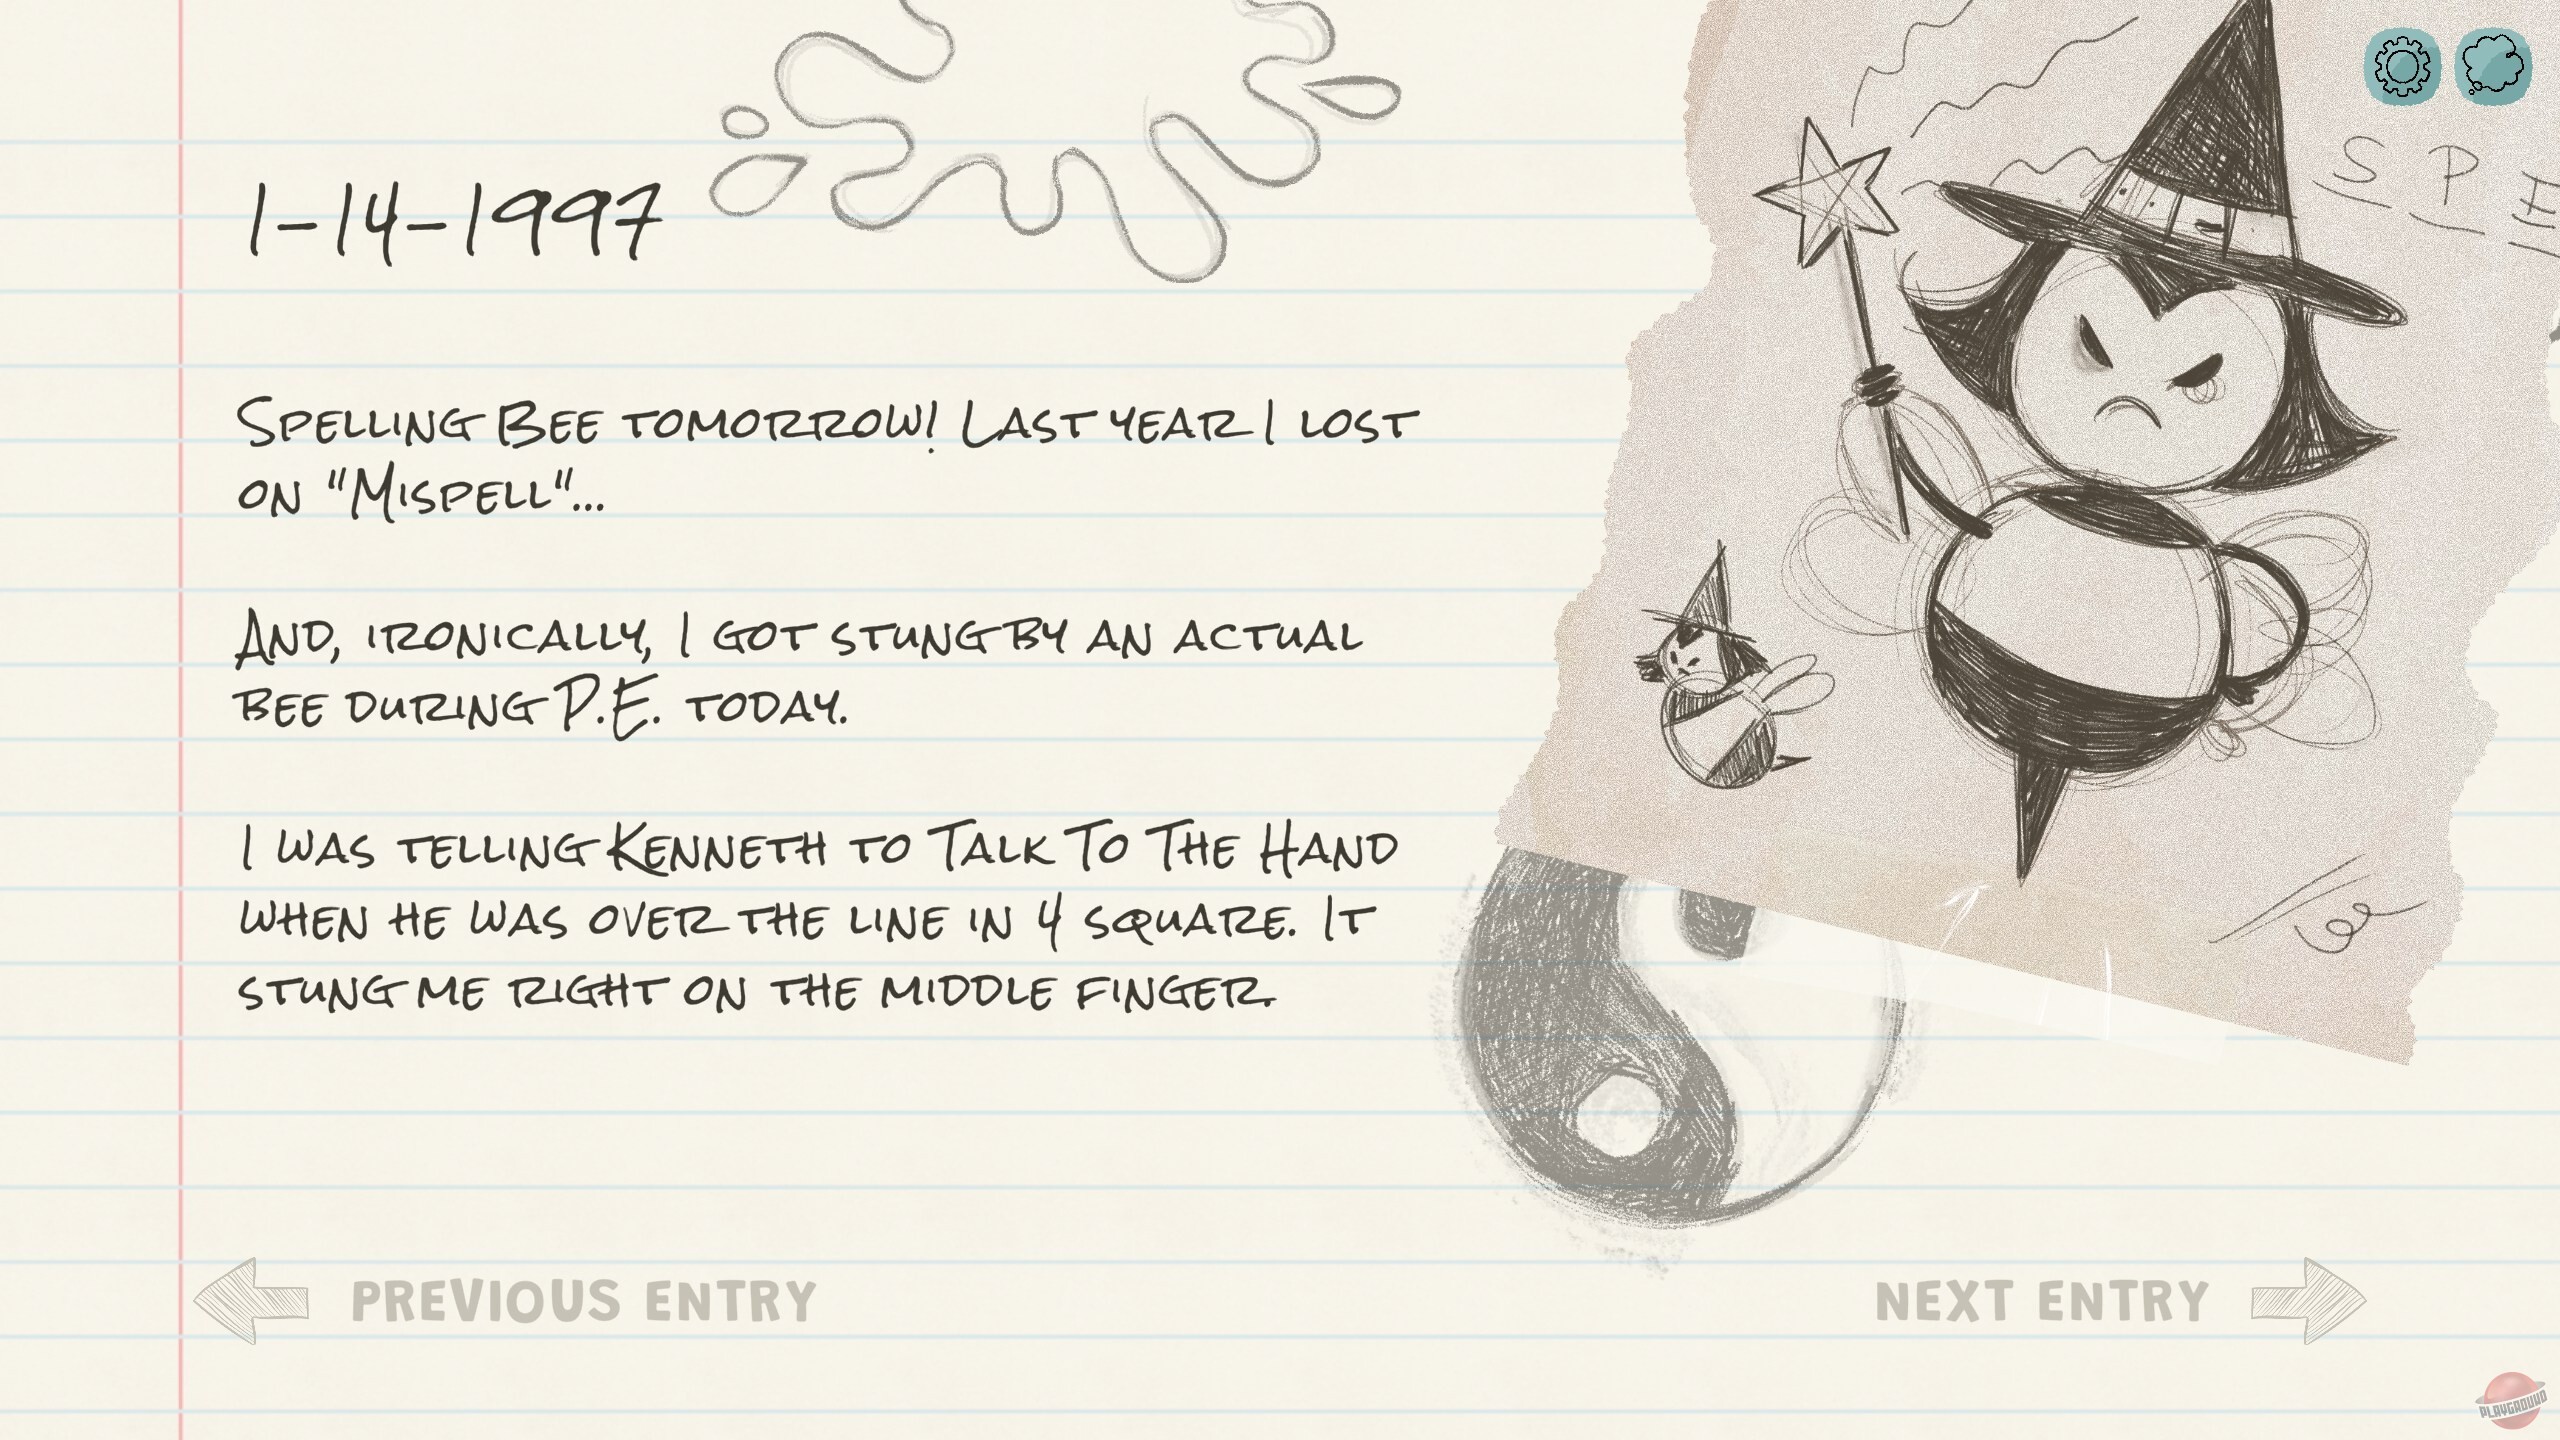 1-14-1997
S P E
Spelling Bee tomorrow! Last year I lost
on "Mispell"...
And, ironically, I got stung by an actual
bee during P.E. today.
I was telling Kenneth to Talk To The Hand
when he was over the line in 4 square. It
stung me right on the middle finger.
PREVIOUS ENTRY
NEXT ENTRY
PLAYGROUND